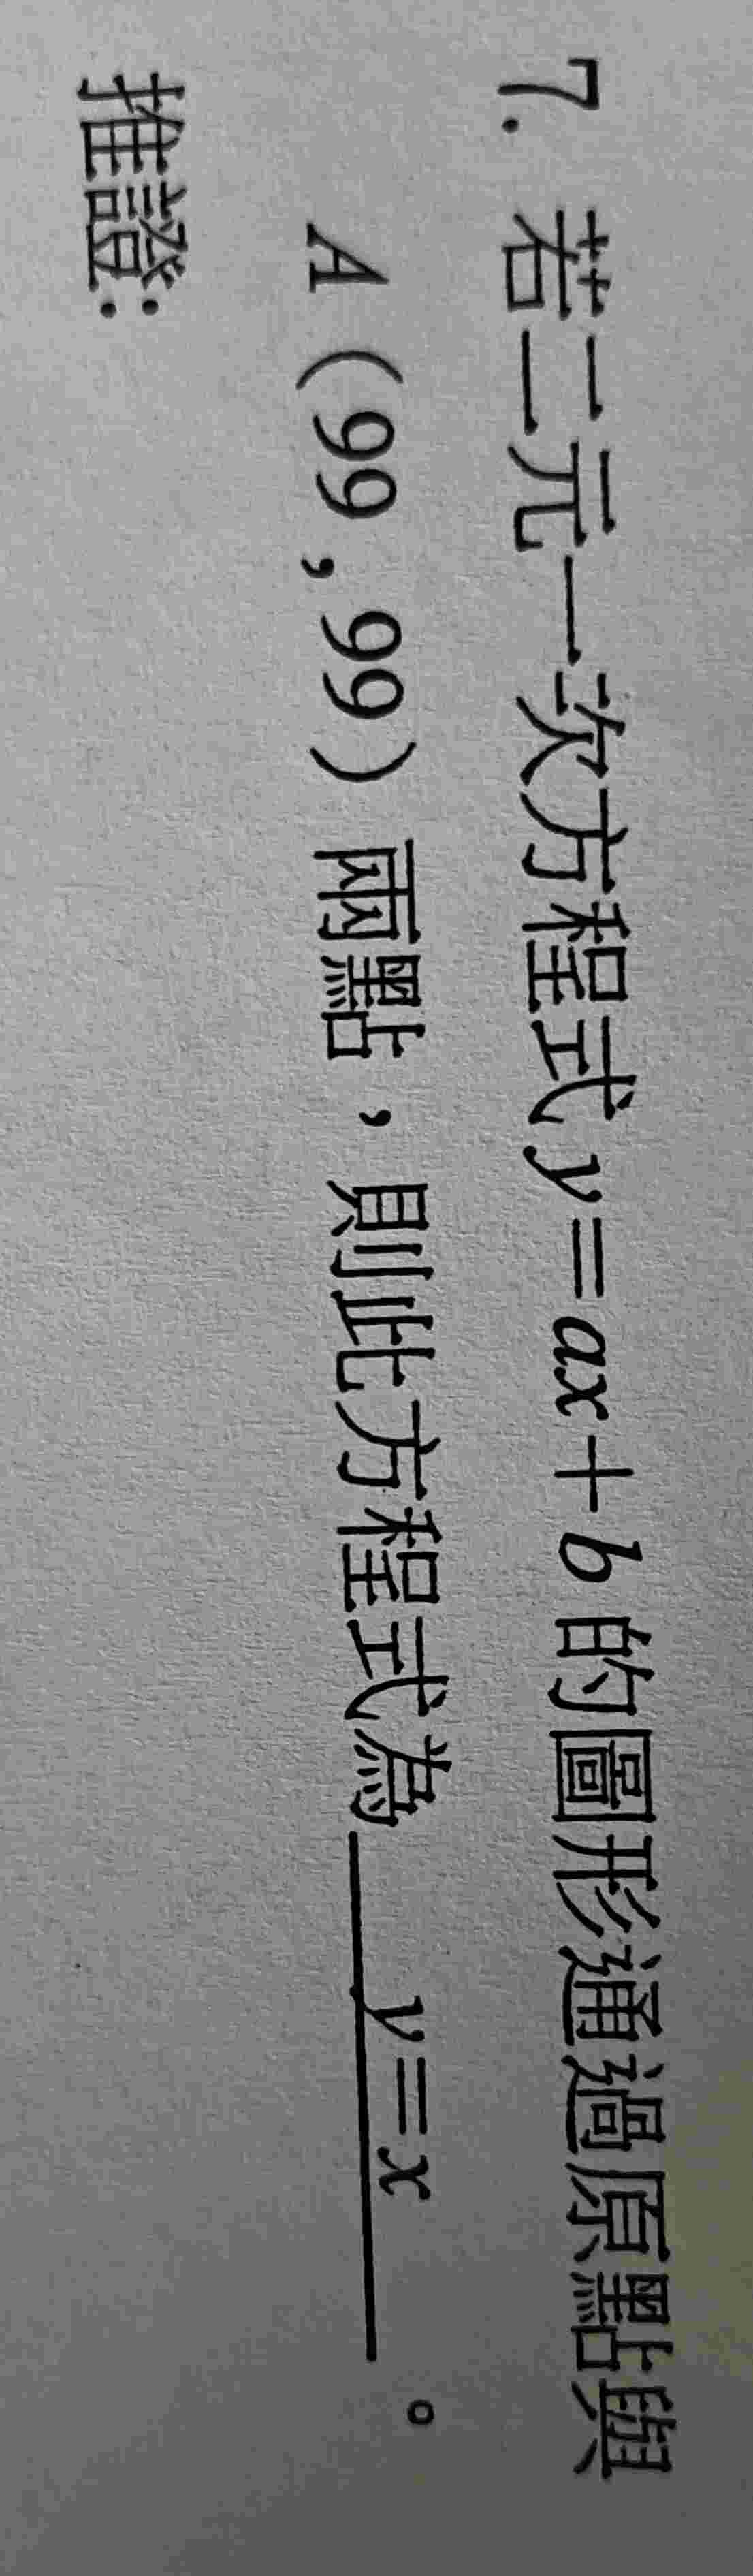 7. 若二元一次方程式 y=ax+b 的圖形通過原點與
A(99,99)兩點,則此方程式為 y=x 。
推證: